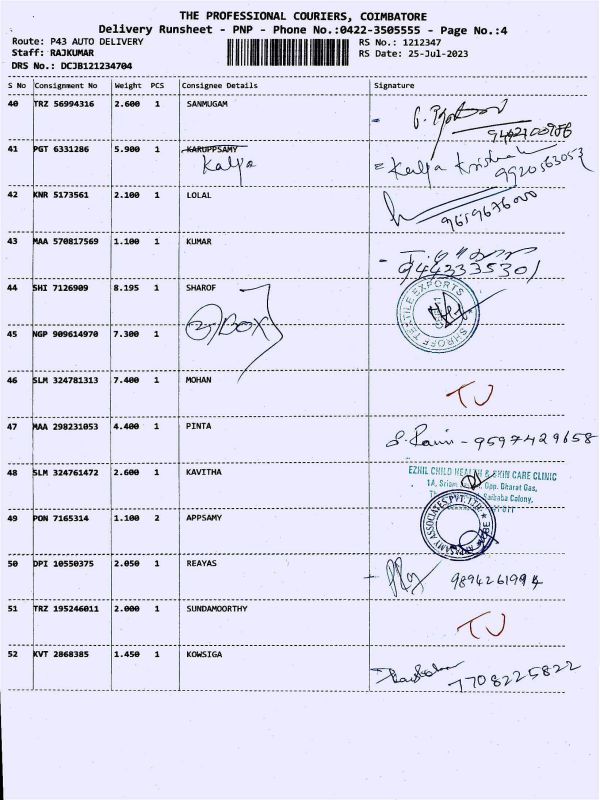 THE PROFESSIONAL COURIERS, COIMBATORE
Delivery Runsheet - PNP - Phone No.:0422-3505555 - Page No.:4
Route: P43 AUTO DELIVERY RS No.: 1212347
Staff: RAJKUMAR RS Date: 25-Jul-2023
DRS No.: DCJB121234704
S No Consignment No Weight PCS Consignee Details Signature
40 TRZ 56994316 2.600 1 SANMUGAM
41 PGT 6331286 5.900 1 KARUPPSAMY
Kalya
= Kalya Krishnah
9920563053
42 KNR 5173561 2.100 1 LOLAL
9659676000
43 MAA 570817569 1.100 1 KUMAR
9442335301
44 SHI 7126909 8.195 1 SHAROF
SHROFF TEXTILE EXPORTS
2/BOX
45 NGP 909614970 7.300 1
46 SLM 324781313 7.400 1 MOHAN
TU
47 MAA 298231053 4.400 1 PINTA
S. Rani - 9597429658
48 SLM 324761472 2.600 1 KAVITHA
EZHIL CHILD HEALTH & SKIN CARE CLINIC
1A, Opp. Bharat Gas,
Saibaba Colony,
49 PON 7165314 1.100 2 APPSAMY
APPSAMY ASSOCIATES PVT. LTD. CBE
50 DPI 10550375 2.050 1 REAYAS
9894261994
51 TRZ 195246011 2.000 1 SUNDAMOORTHY
TU
52 KVT 2868385 1.450 1 KOWSIGA
7708225822